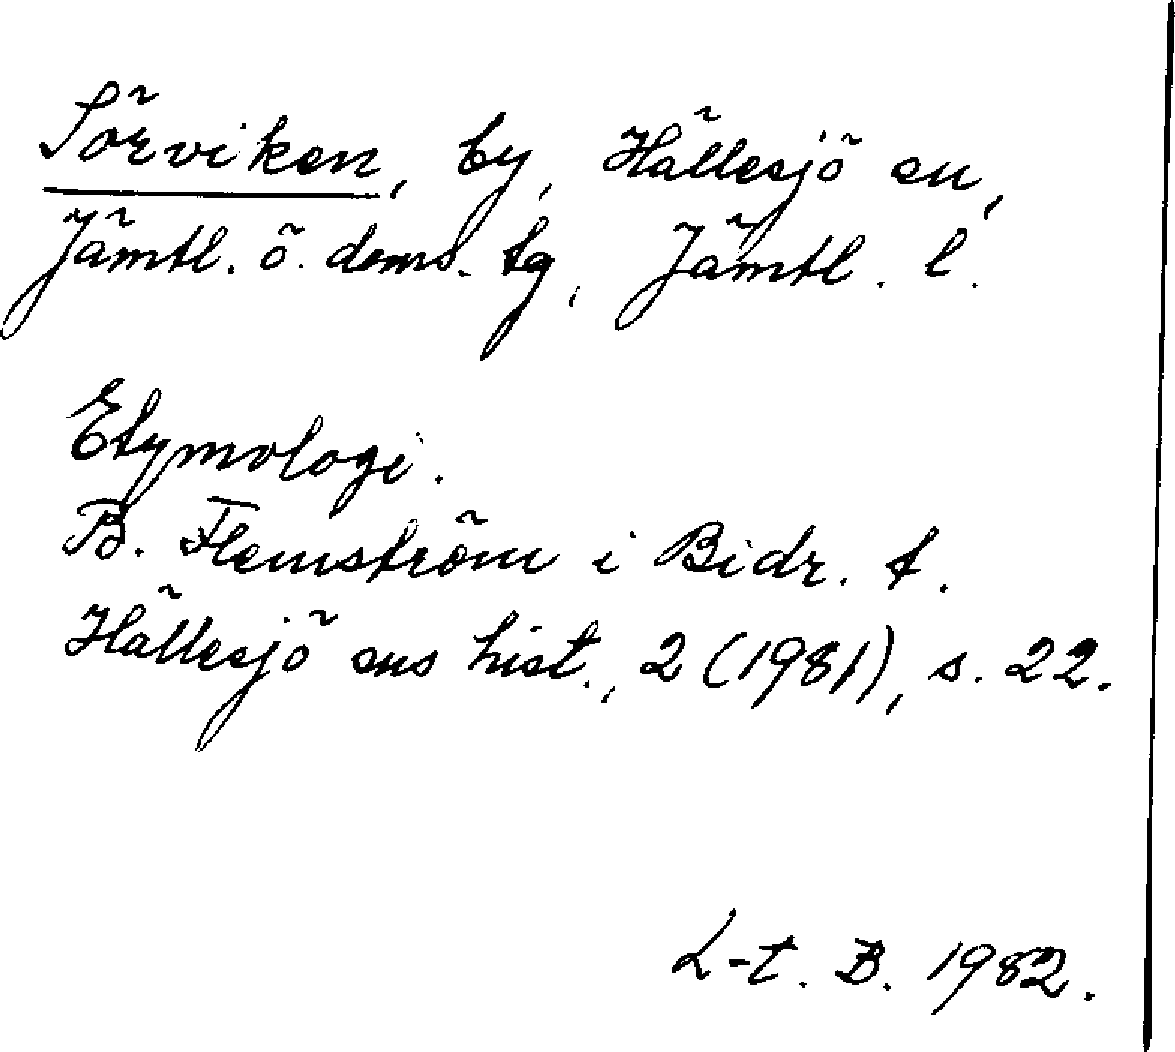 Sörviken, by, Hällesjö sn,
Jämtl. ö. doms. tg, Jämtl. l.
Etymologi.
B. Flemström i Bidr. t.
Hällesjö sns hist., 2 (1981), s. 22.
L-t. B. 1982.